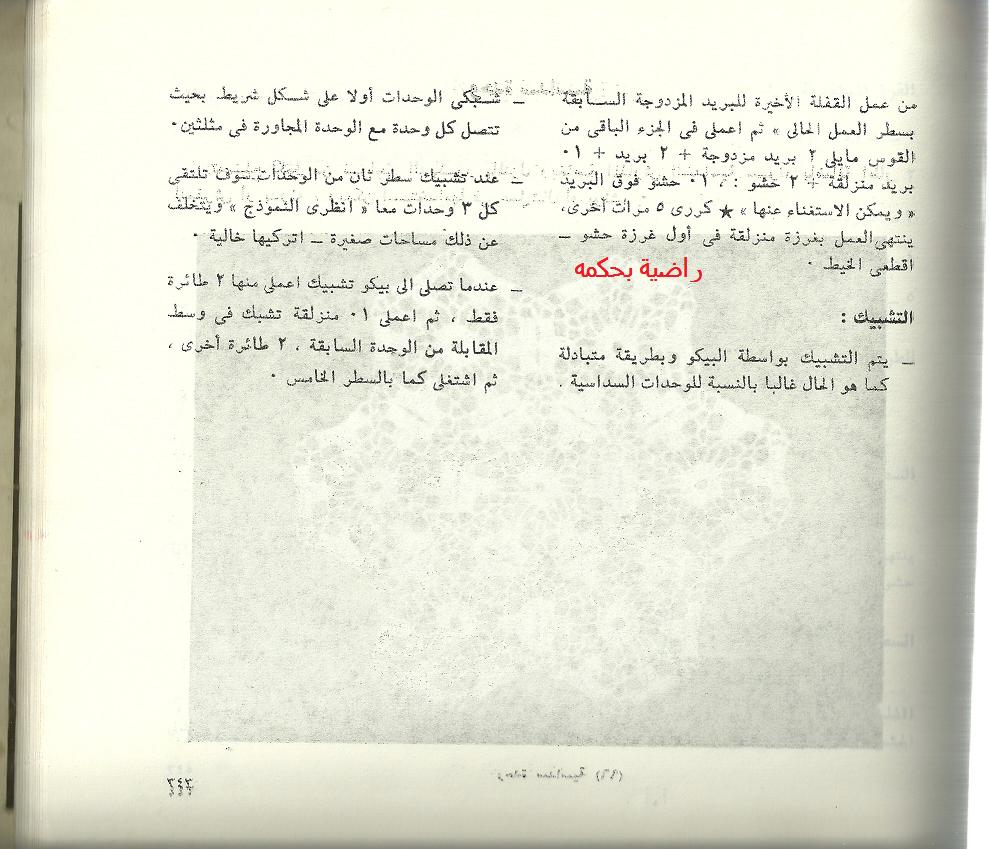 من عمل القفلة الأخيرة للبريد المزدوجة الســابقة
بسطر العمل الحالى » ثم اعملى فى الجزء الباقى من
القوس مايلى ٢ بريد مزدوجة + ٢ بريد + ٠١
بريد منزلقة + ٢ حشو : ، ٠١ حشو فوق البريد
« ويمكن الاستغناء عنها » ★ كررى ٥ مرات أخرى،
ينتهى العمل بغرزة منزلقة فى أول غرزة حشو ــ
اقطعى الخيط ٠
راضية بحكمه
التشبيك :
ــ يتم التشبيك بواسطة البيكو وبطريقة متبادلة
كما هو الحال غالبا بالنسبة للوحدات السداسية .
ــ شــبكى الوحدات أولا على شــكل شريط بحيث
تتصل كل وحدة مع الوحدة المجاورة فى مثلثين٠
ــ عند تشبيك سطر ثان من الوحدات سوف تلتقى
كل ٣ وحدات معا « انظرى النموذج » ويتخلف
عن ذلك مساحات صغيرة ــ اتركيها خالية ٠
ــ عندما تصلى الى بيكو تشبيك اعملى منها ٢ طائرة
فقط ، ثم اعملى ٠١ منزلقة تشبك فى وسط
المقابلة من الوحدة السابقة ، ٢ طائرة أخرى ،
ثم اشتغلى كما بالسطر الخامس ٠
(٦٦) وحدة سداسية